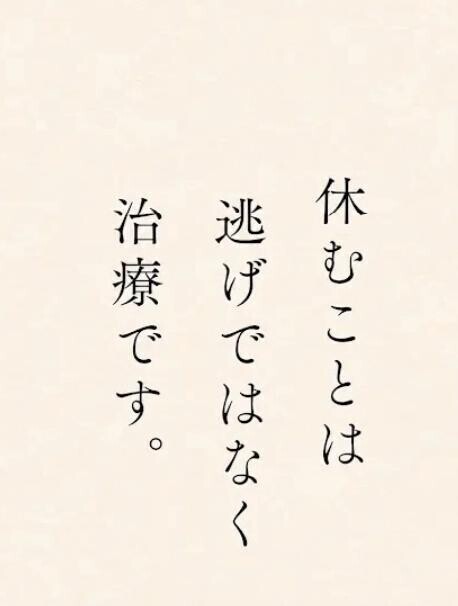 休むことは
逃げではなく
治療です。